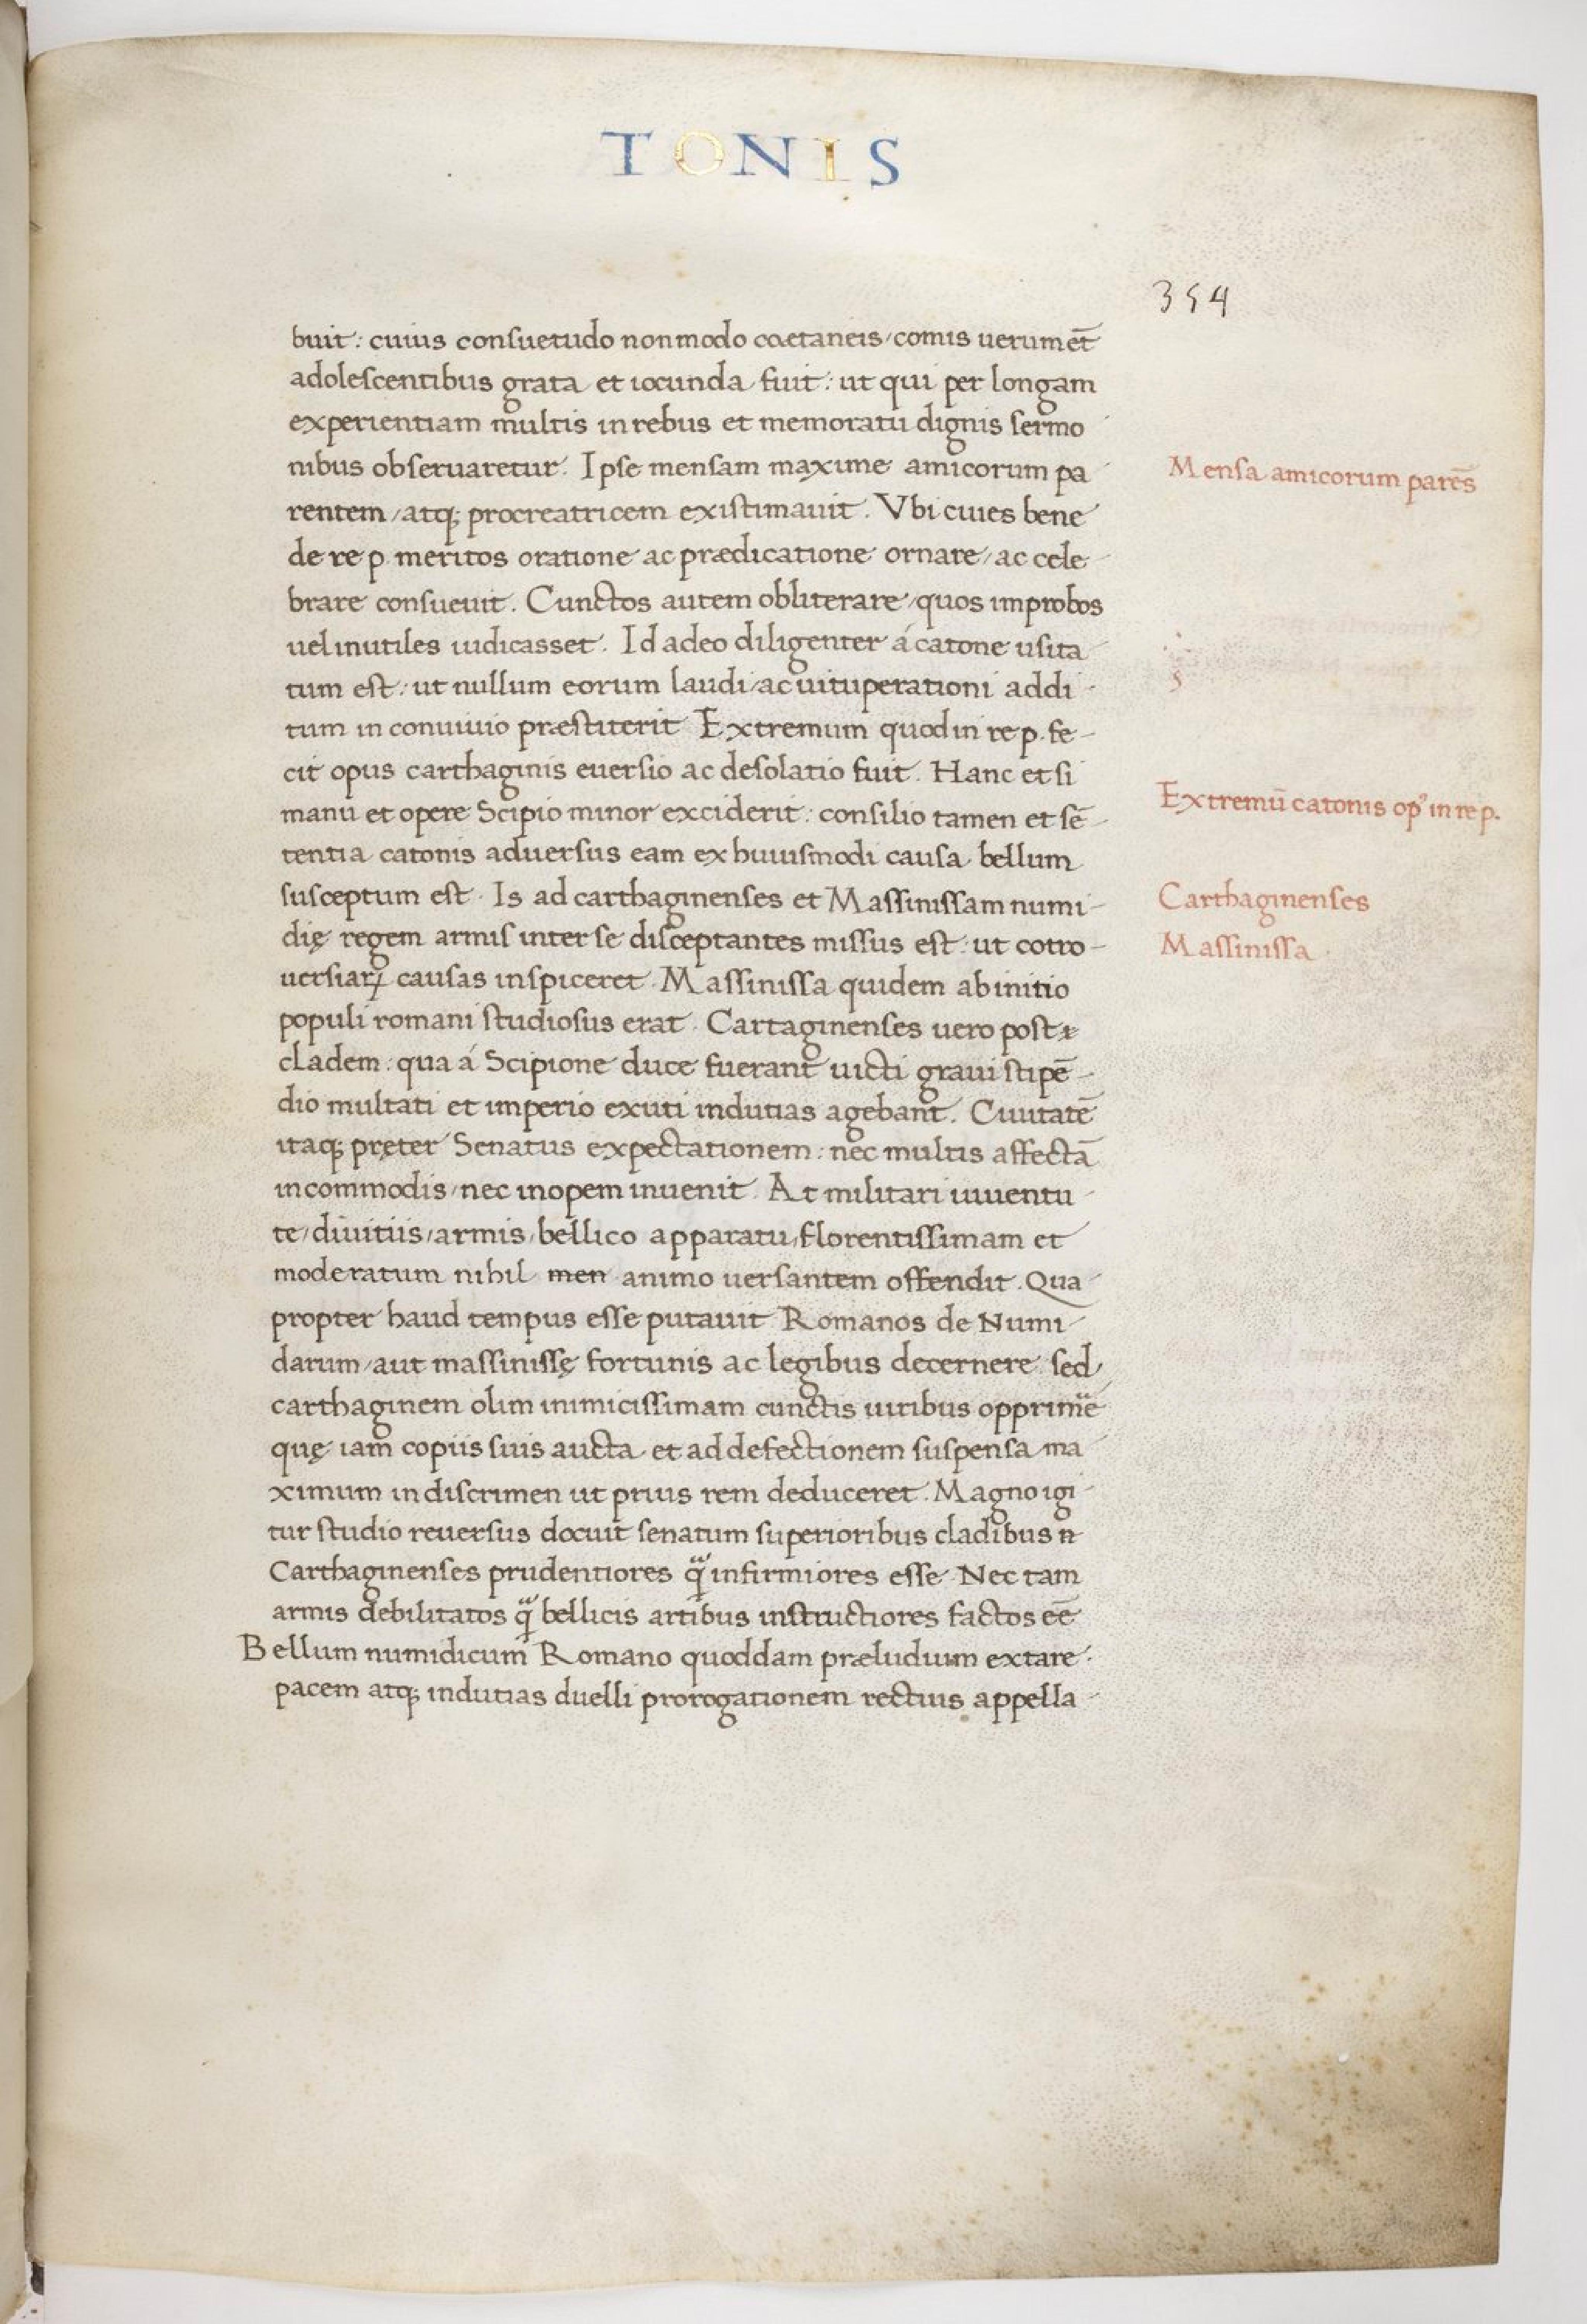 TONIS
354
buit: cuius consuetudo non modo coetaneis/comis uerum et̄
adolescentibus grata et iocunda fuit: ut qui per longam
experientiam multis in rebus et memoratu dignis sermo
nibus obseruaretur. Ipse mensam maxime amicorum pa
Mensa amicorum parēs
rentem/atq; procreatricem existimauit. Vbi ciues bene
de re p. meritos oratione ac prædicatione ornare/ac cele-
brare consueuit. Cunctos autem obliterare/quos improbos
uel inutiles iudicasset. Id adeo diligenter á catone usita
tum est: ut nullum eorum laudi/ac uituperationi addi-
tum in conuiuio præstiterit Extremum quod in re p. fe-
cit opus carthaginis euersio ac desolatio fuit. Hanc et si
Extremū catonis op' in re p.
manu et opere Scipio minor exciderit: consilio tamen et sē-
tentia catonis aduersus eam ex huiusmodi causa bellum
susceptum est. Is ad carthaginenses et Massinissam numi-
Carthaginenses
dię regem armis inter se disceptantes missus est: ut cōtro-
Massinissa
uersiaꝝ causas inspiceret. Massinissa quidem ab initio
populi romani studiosus erat. Cartaginenses uero post
cladem: qua á Scipione duce fuerant uicti graui stipē-
dio multati et imperio exuti indutias agebant. Ciuitatē
itaq; pręter Senatus expectationem: nec multis affectā
incommodis/nec inopem inuenit. At militari iuuentu-
te/diuitiis/armis/bellico apparatu/florentissimam et
moderatum nihil men animo uersantem offendit. Qua-
propter haud tempus esse putauit Romanos de Numi-
darum/aut massinissę fortunis ac legibus decernere sed
carthaginem olim inimicissimam cunctis uiribus opprimē
quę iam copiis suis aucta et ad defectionem suspensa ma
ximum in discrimen ut prius rem deduceret. Magno igi-
tur studio reuersus docuit senatum superioribus cladibus n̄
Carthaginenses prudentiores q̃ infirmiores esse. Nec tam
armis debilitatos q̃ bellicis artibus instructiores factos eē
Bellum numidicum Romano quoddam præludium extare.
pacem atq; indutias duelli prorogationem rectius appella-